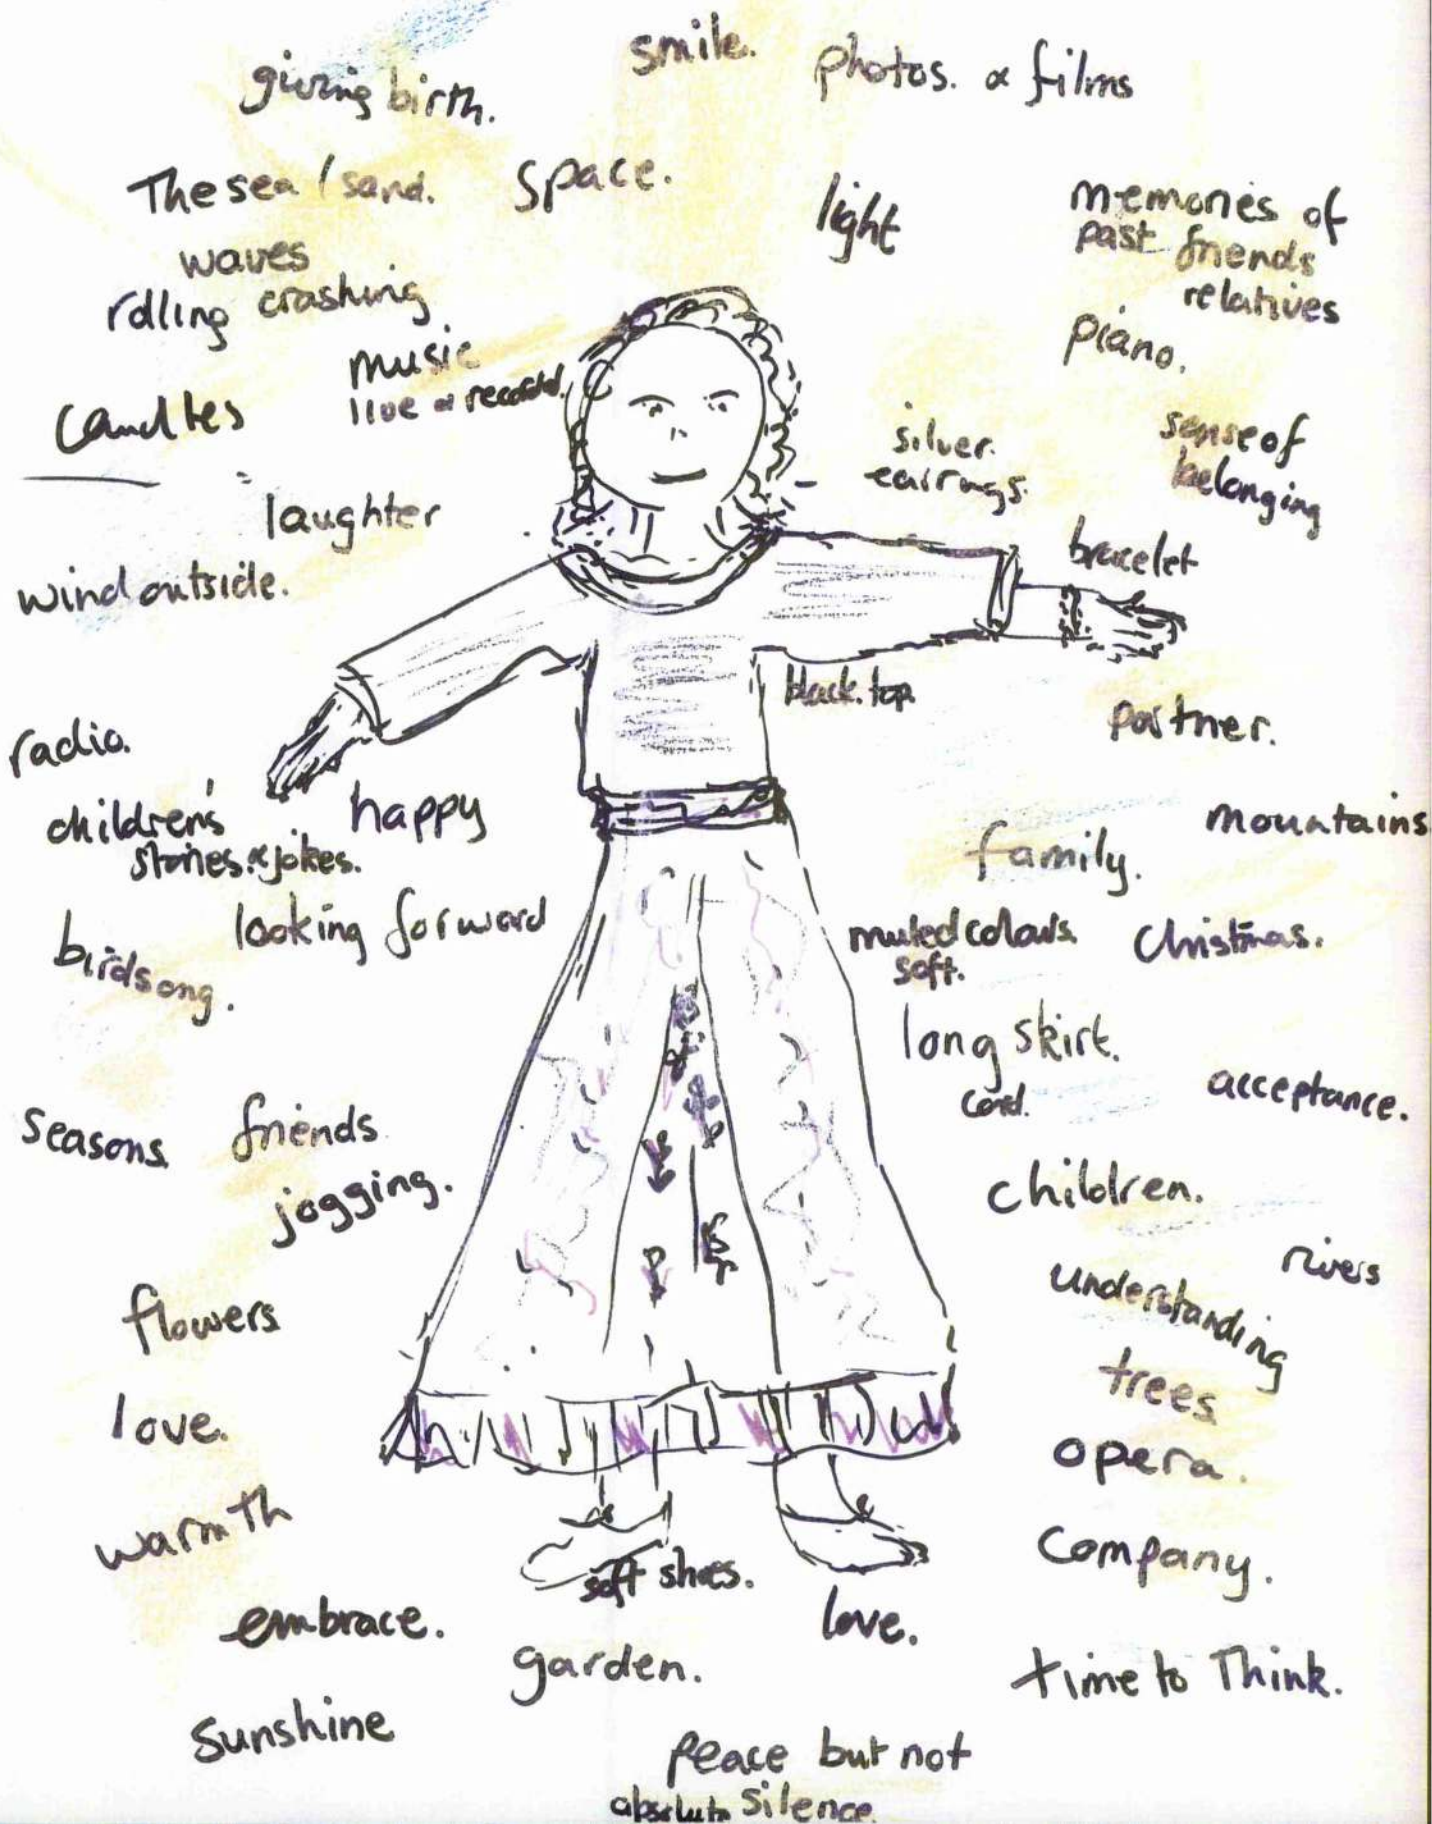 smile.
giving birth.
photos. & films
The sea / sand.
space.
light
memories of
past friends
relatives
waves
rolling crashing
music
live & recorded.
piano.
candles
silver.
earrings.
sense of
belonging
laughter
bracelet
wind outside.
black top.
partner.
radio.
happy
children's
stories & jokes.
family.
mountains
looking forward
birdsong.
muted colours.
soft.
Christmas.
long skirt.
cord.
acceptance.
seasons.
friends
jogging.
children.
rivers
understanding
flowers
trees
love.
opera.
warmth
company.
soft shoes.
embrace.
love.
garden.
time to Think.
sunshine
peace but not
absolute silence.